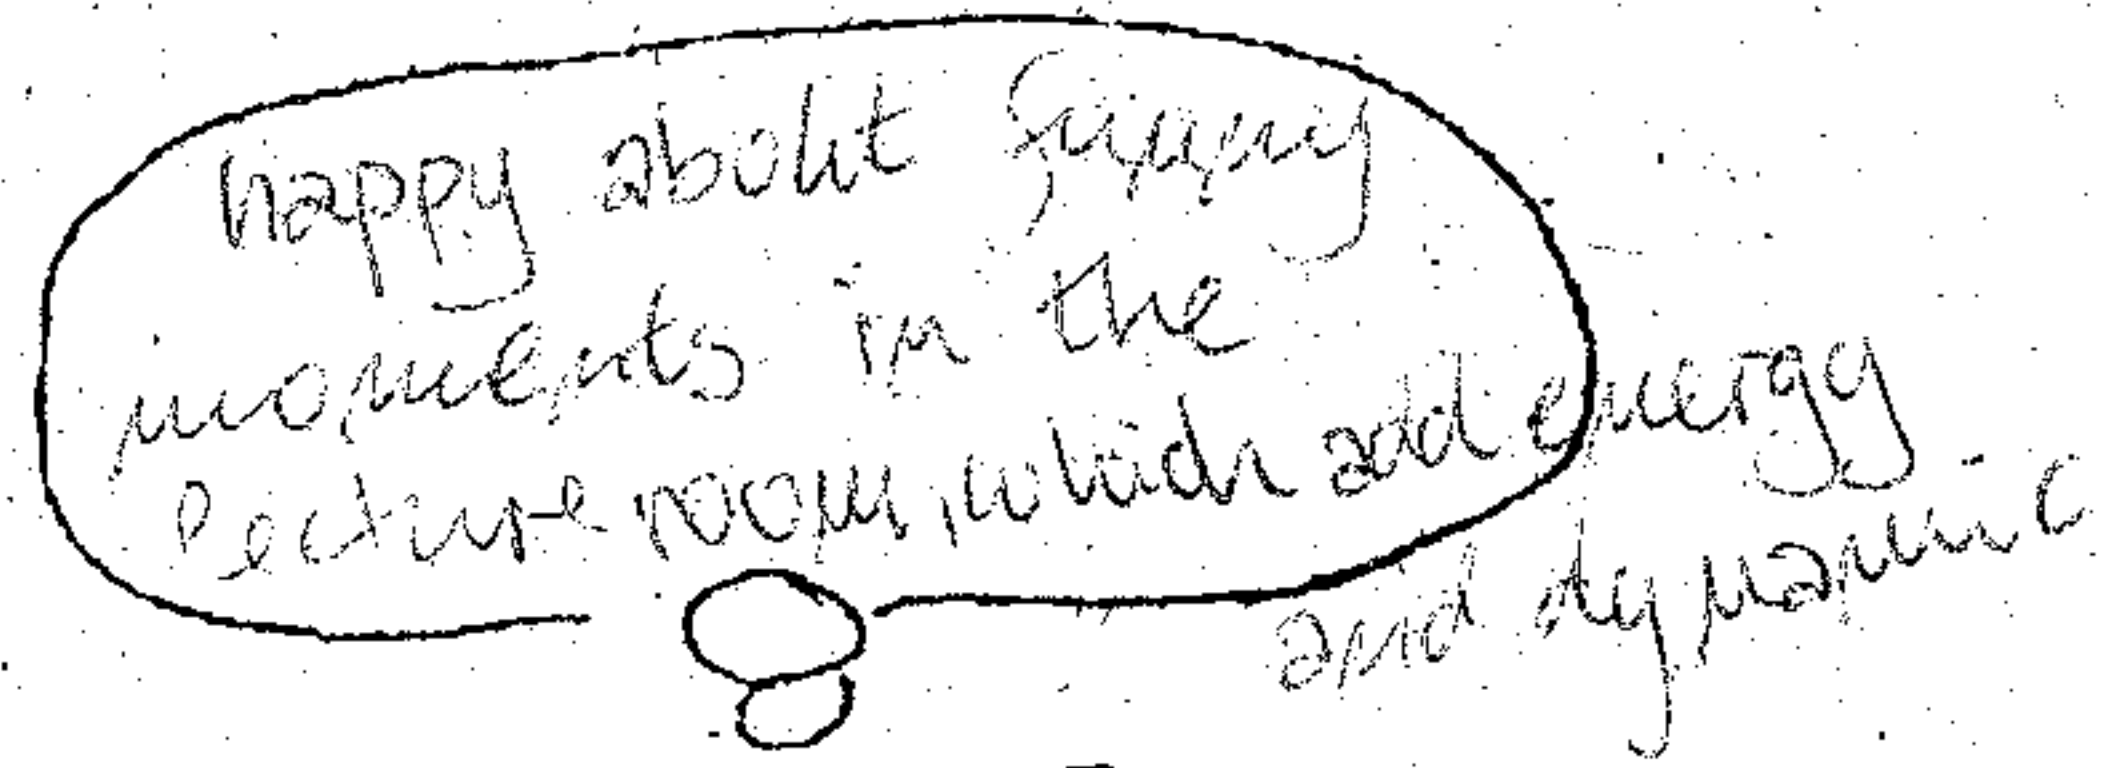 happy about funny
moments in the
lecture room, which add energy
and dynamic